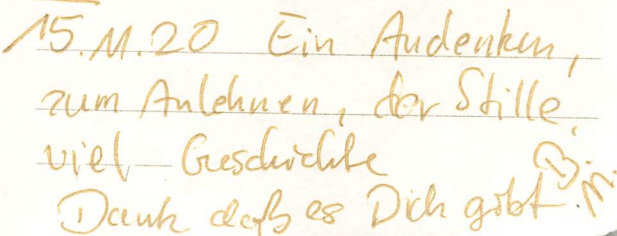 15.11.20 Ein Andenken,
zum Anlehnen, der Stille,
viel Geschichte
Dank daß es Dich gibt. B. M.